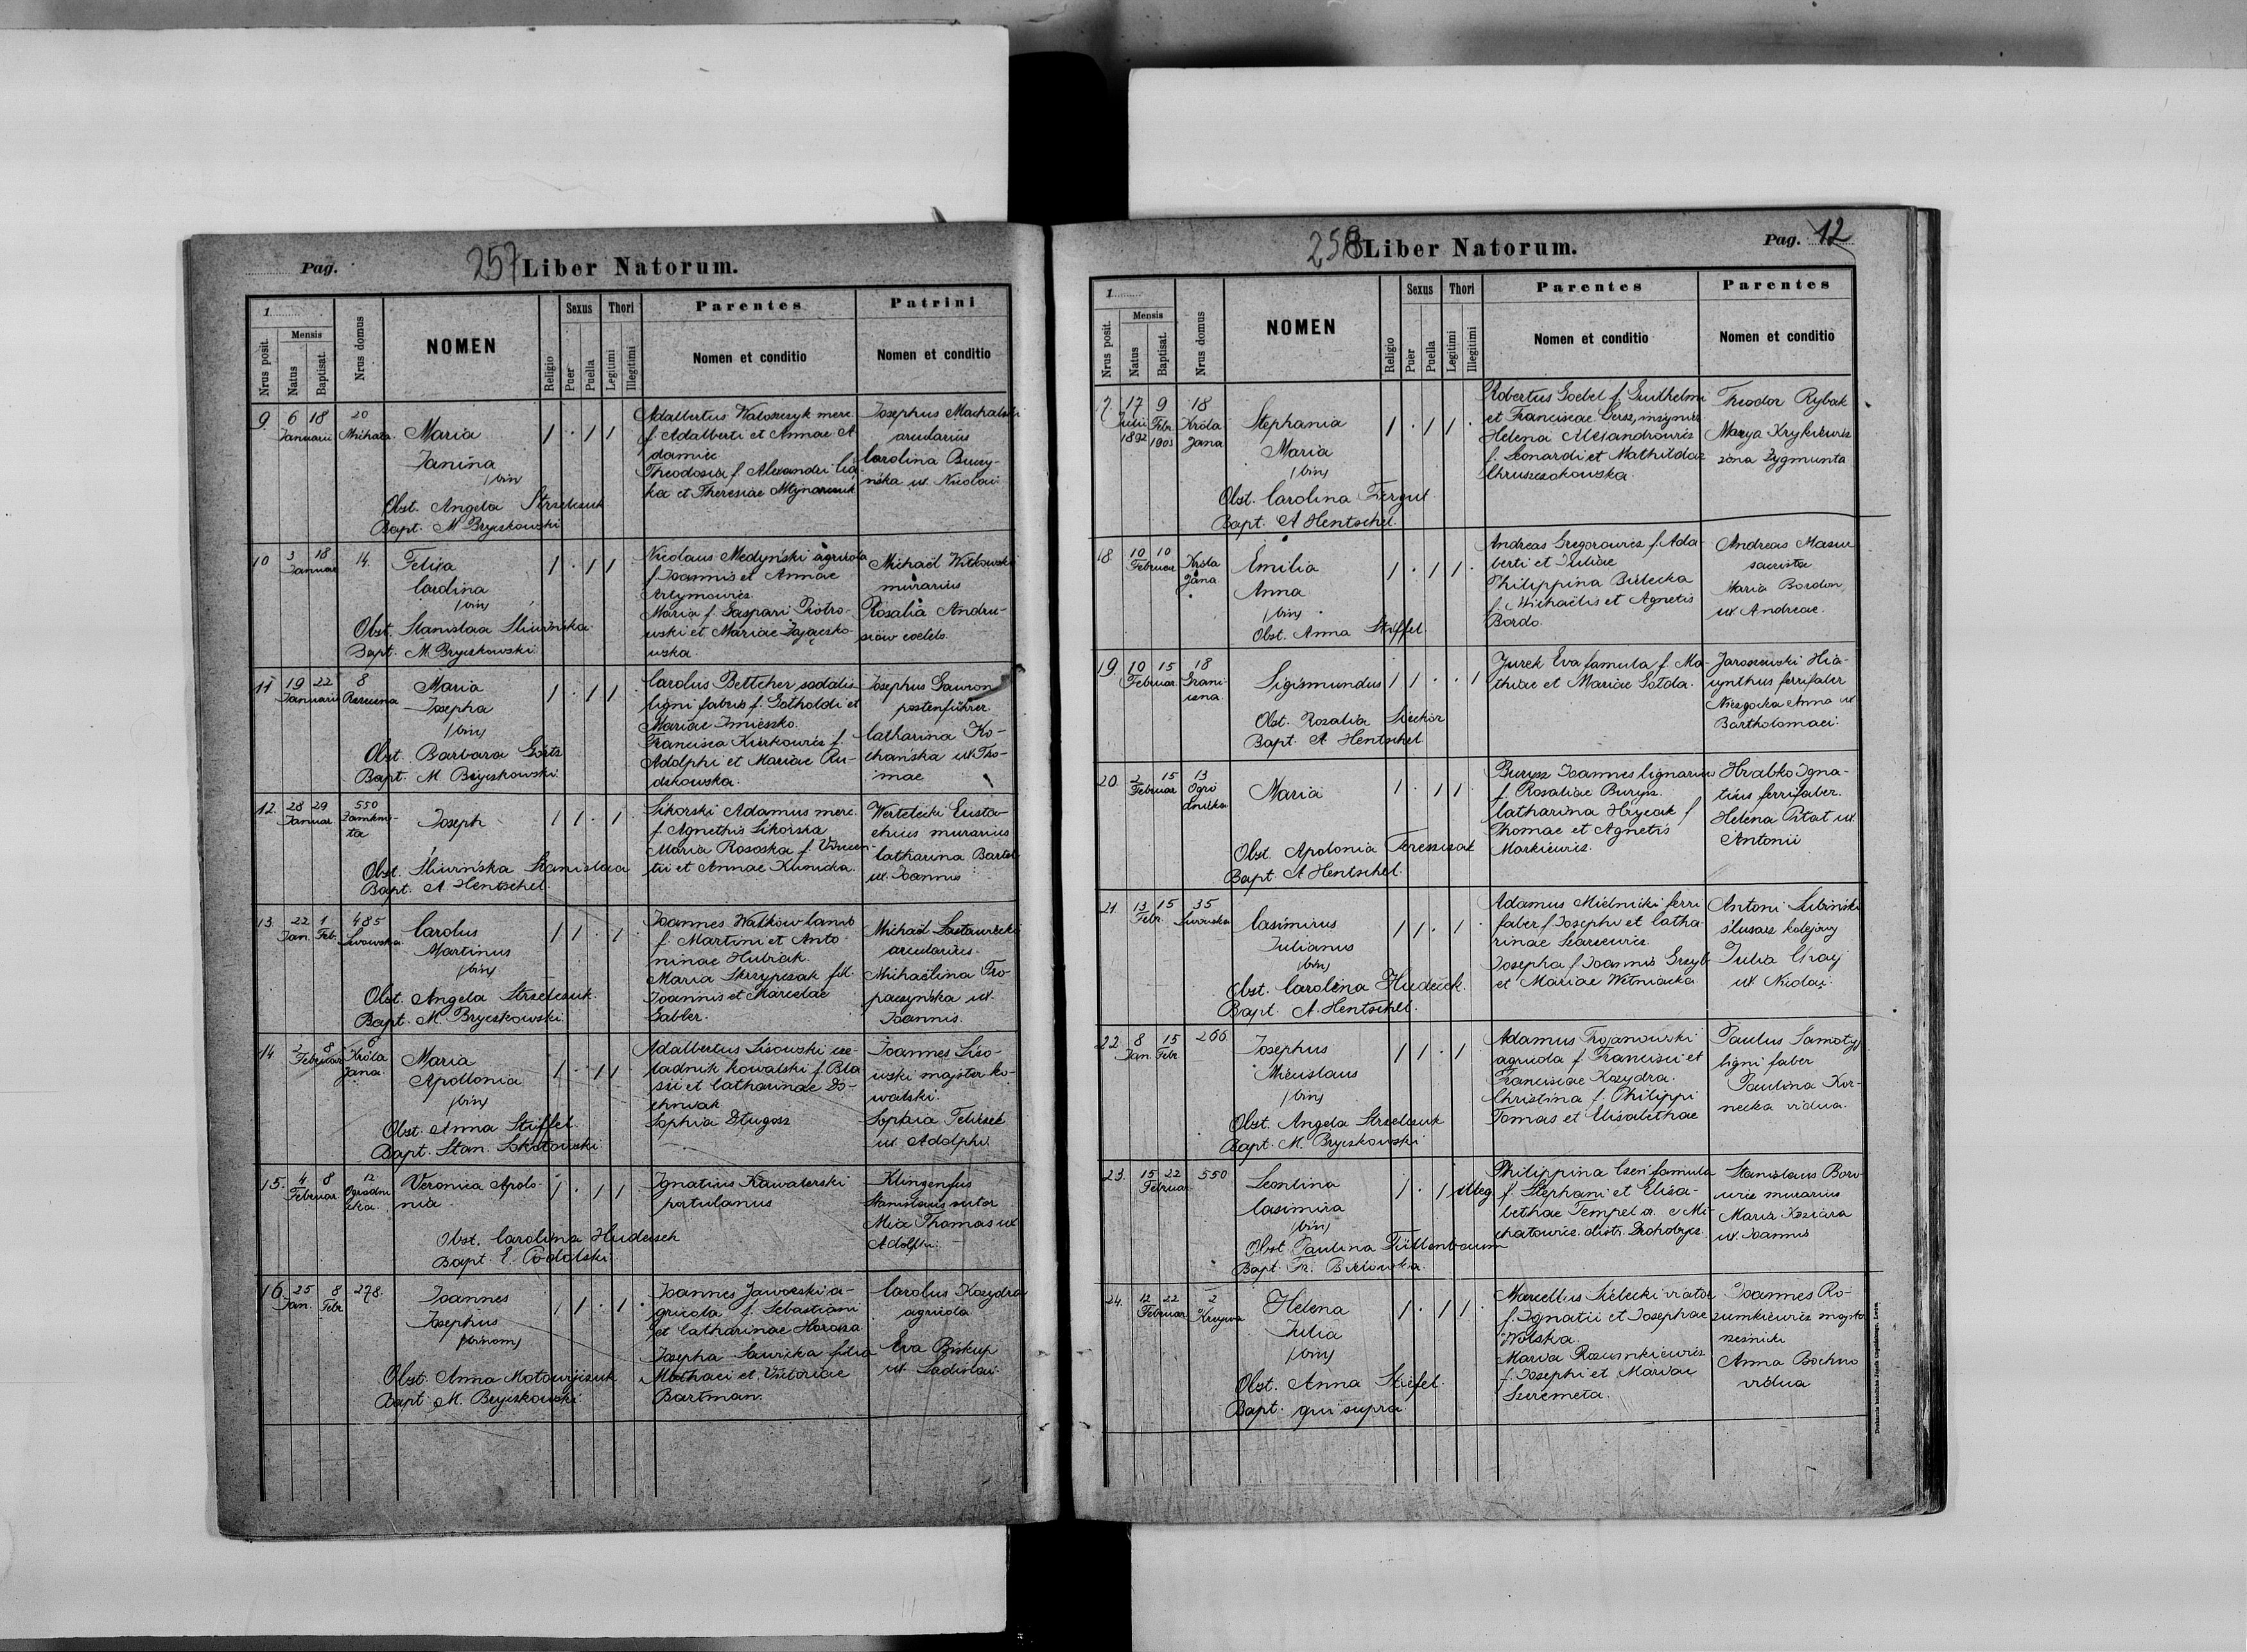 Pag.
257 Liber Natorum.
1
Nrus posit.
Mensis
Natus
Baptisat.
Nrus domus
NOMEN
Religio
Sexus
Puer
Puella
Thori
Legitimi
Illegitimi
Parentes
Nomen et conditio
Patrini
Nomen et conditio
9. 6 18 20
Januarii
Maria
Janina
/bin/
Obst. Angela Strzelczuk
Bapt. M Bryczkowski
Adalbertus Wałoszczyk merc.
f. Adalberti et Annae A
damiec
Theodosia f. Alexandri
ka et Theresiae Młynarczuk
Josephus Machalski
arcularius
Carolina Buczy-
ńska ux. Nicolai
10 3 18 14.
Januar
Felixa
Carolina
/bin/
Obst. Stanislaa Sliwińska
Bapt. M. Bryczkowski
Nicolaus Medyński agricola
f. Joannis et Annae
Artymowicz.
Maria f. Gaspari Piotro-
wski et Mariae Zajączko
wska.
Michael Witkowski
murarius
Rosalia Andru-
siów coelebs.
11 19 22 8
Januarii Rzeczna
Maria
Josepha
/bin/
Obst. Barbara Gorts
Bapt. M. Bryczkowski
Carolus Bettcher, sodalis
ligni fabris f. Gotholdi et
Mariae Imieszko.
Francisca Kierkowicz f.
Adolphi et Mariae Ru-
dzkowska.
Josephus Gawron
postenführer.
Catharina Ko-
chańska ux. Tho-
mae
12. 28 29 550
Januar Zamkni-
ta
Joseph
Obst. Sliwińska Stanislaa
Bapt. A Hentschel.
Sikorski Adamus merc.
f. Agnethis Sikorska
Maria Rososka f. Vincen-
tii et Annae Kunicka.
Wertelecki Eusta-
chius murarius
Catharina Bartel
ux. Joannis
13. 22 1 485
Jan. Feb. Lwowska
Carolus
Martinus
/bin/
Obst. Angela Strzelczuk.
Bapt. M. Bryczkowski
Joannes Wałków
f. Martini et Anto-
ninae Hubiak.
Maria Skrzypczak fil.
Joannis et Marcelae
Gabler.
Michael
arcularius.
Michaelina Tro
paczyńska ux.
Joannis.
14. 2 8 8
Februar Króla
Jana
Maria
Apollonia
/bin/
Obst. Anna Stiffel.
Bapt. Stan. Sokołowski
Adalbertus Lisowski cze-
ladnik kowalski f. Bla
sii et Catharinae Do-
chniak
Sophia Długosz
Joannes Liso-
wski majster ko-
walski.
Sophia
ux. Adolphi
15. 4 8 12
Februar Ogrodni
cka.
Veronica Apolo-
nia
Obst. Carolina Hudeczek
Bapt. E. Podolski
Ignatius Kawalerski
portulanus
Klingenfus
Stanislaus sutor
Mia Thomas ux
Adolphi.
16. 25 8 278.
Jan. Febr
Joannes
Josephus
/binom/
Obst. Anna Motowijczuk
Bapt. M. Bryczkowski
Joannes Jaworski a-
gricola f. Sebastiani
et Catharinae Horosza.
Josepha Sawicka filia
Mathaei et Victoriae
Bartman.
Carolus Kozydra
agricola
Eva Biskup
ux. Ladislai
Pag. 12
258 Liber Natorum.
1
Nrus posit.
Mensis
Natus
Baptisat.
Nrus domus
NOMEN
Religio
Sexus
Puer
Puella
Thori
Legitimi
Illegitimi
Parentes
Nomen et conditio
Parentes
Nomen et conditio
17 9 18
Julii Febr. Króla
1892 1903 Jana
Stephania
Maria
/bin/
Obst. Carolina Fergul
Bapt. A Hentschel.
Robertus Goebel f. Guilhelmi
et Franciscae Gersz, inżynier
Helena Alexandrowicz
f. Leonardi et Mathildae
Chruszczakowska.
Theodor Rybak
Marya Krykiewicz
żona Zygmunta
18. 10 10
Februar Króla
Jana
Emilia
Anna
/bin/
Obst. Anna Stiffel.
Andreas Gregorowicz f. Ada
berti et Juliae
Philippina Bielecka
f. Michaelis et Agnetis
Bordo.
Andreas Mazur
sacrista
Maria Bordon
ux Andreae.
19. 10 15 18
Februar. Grani-
czna.
Sigismundus
Obst. Rozalia Siećkoz
Bapt. A Hentschel
Jurek Eva famula f. Ma-
thiae et Mariae Gołda.
Jaroszewski Hia-
cynthus ferrifaber
Niezgocka Anna ux
Bartholomaei.
20. 2 15 13
Februar Ogro
dnicka
Maria
Obst. Apolonia Tereszczak
Bapt. A Hentschel.
Burysz Joannes lignarius
f. Rosaliae Burysz.
Catharina Hrycak f
Thomae et Agnetis
Markiewicz.
Hrabko Igna-
tius ferrifaber.
Helena Pitat ux.
Antonii
21. 13 15 35
Febr. Lwowska
Casimirus
Julianus
/bin/
Obst. Carolina Hudeczek.
Bapt. A. Hentschel.
Adamus Mielnicki ferri
faber f. Josephi et Catha-
rinae
Josepha f. Joannis Grzyb
et Mariae Wetniacka
Antoni Lubiński
ślusarz kolejowy
Julia
ux. Nicolai
22 8 15 266
Jan Febr
Josephus
Miecislaus
/bin/
Obst. Angela Strzelczuk
Bapt. M. Bryczkowski
Adamus Trojanowski
agricola f. Francisci et
Franciscae Kozydra.
Christina f. Philippi
Tomas et Elisabethae
Paulus Samotyj
ligni faber
Paulina Kor-
necka vidua.
23. 15 22 550
Februar
Leontina
Casimira
/bin/
illeg
Obst. Paulina Füllenbaum
Bapt. Fr. Bielówka.
Philippina Czeri famula
f. Stephani et Elisa-
bethae Tempel a. e Mi-
chałowice distr. Drohobycz.
Stanislaus Boro
wicz murarius
Maria Koziara
ux. Joannis
24. 12 22 2
Februar Krzywa
Helena
Julia
/bin/
Obst. Anna Stiefel.
Bapt. qui supra
Marcellus Sielecki viator
f. Ignatii et Josephae
Wolska.
Maria Rozumkiewicz
f. Josephi et Mariae
Szeremeta.
Joannes Ro-
zumkiewicz majster
rzeźnicki
Anna Bochno
vidua